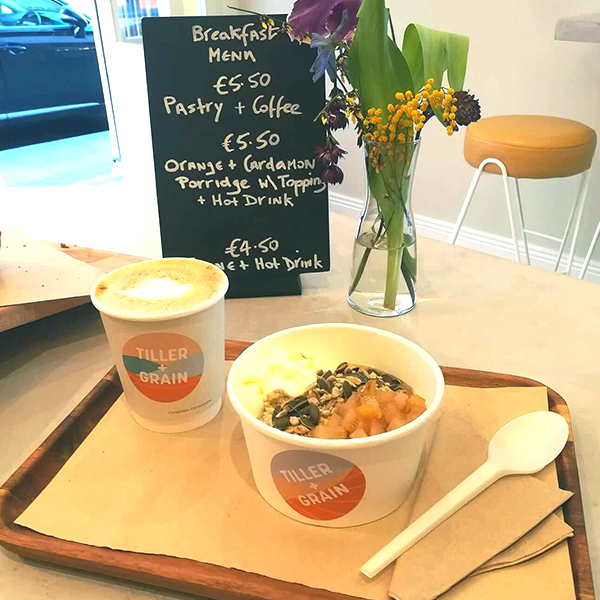 Breakfast
Menu
£5.50
Pastry + Coffee
£5.50
Orange + Cardamon
Porridge w\ Topping
+ Hot Drink
£4.50
+ Hot Drink
TILLER
+
GRAIN
TILLER
+
GRAIN